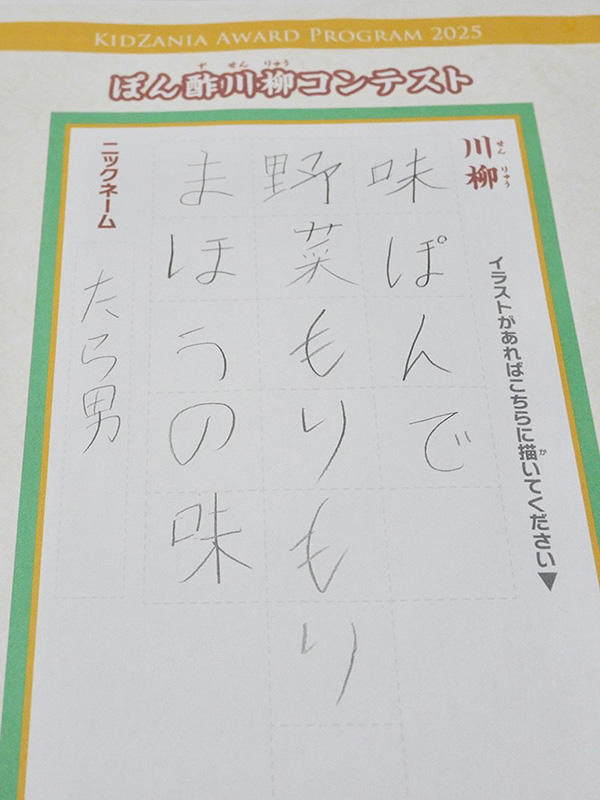 KIDZANIA AWARD PROGRAM 2025
ぽん酢川柳コンテスト
す せん りゅう
川柳
せん りゅう
イラストがあればこちらに描いてください▼
か
味ぽんで
野菜もりもり
まほうの味
ニックネーム
たら男